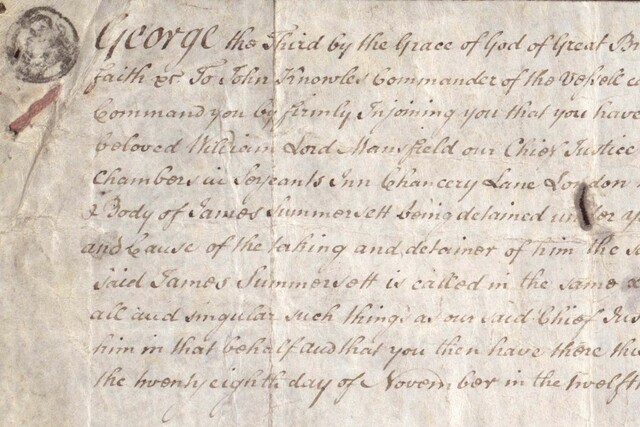 George the Third by the Grace of God of Great
faith &c To John Knowles Commander of the Vessell
Command you by firmly Injoining you that you have
beloved William Lord Mansfield our Chief Justice
Chambers in Serjeants Inn Chancery Lane London
& Body of James Summersett being detained under
and Cause of the taking and detainer of him the
Said James Summersett is called in the same
all and singular such things as our said Chief
him in that behalf and that you then have there
the twenty eighth day of November in the Twelfth